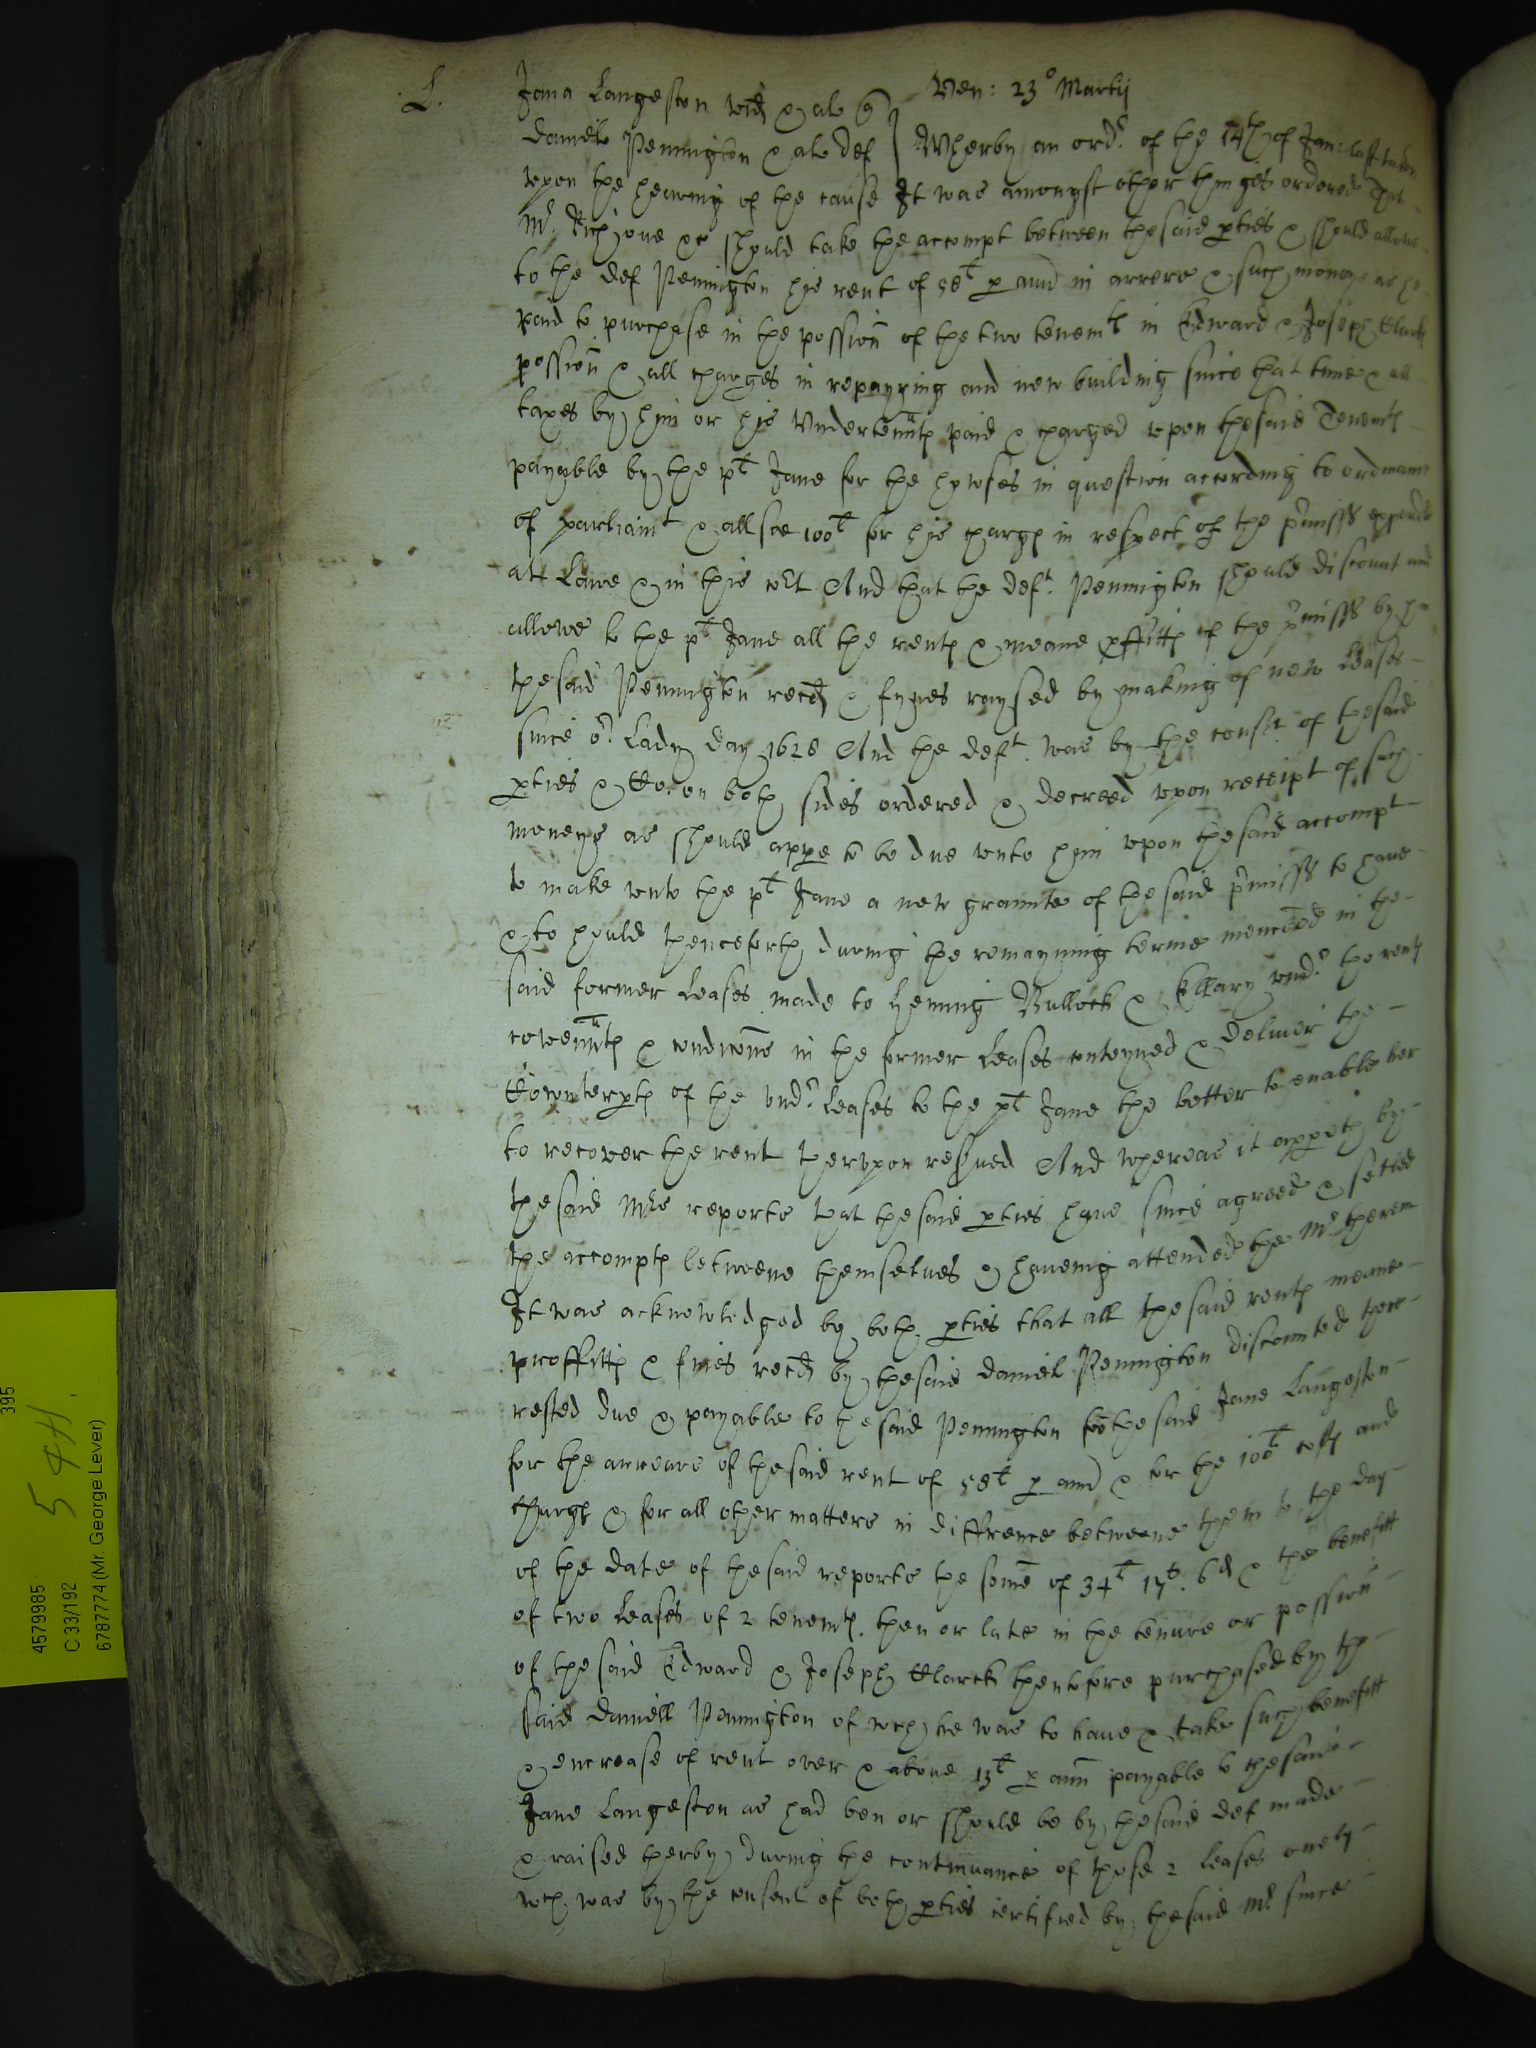 L.
Ven: 23° Martij
Jana Langeston vid & al q
Daniel Pennington & al def } Wherby an ordr. of the 14th of Jan: last taken
vpon the hearing of the cause It was amongst other thinges ordered That
Mr. Rich) one &c should take the accompt between the said pties & should allowe
to the def Pennington his rent of 58l p annū in arrere & such moneys as he
paid to purchase in the possiōn of the two tenemts in Edward & Joseph Clarks
possiōn & all charges in repayring and new building since that time & all
taxes by him or his Vndertennts paid & charged vpon the said Tenemts
payable by the plt Jane for the howses in question according to ordinance
of parliamt & allsoe 100l for his charges in respect of the pmisss expended
att Lawe & in this crt And that the deft. Pennington should discount and
allowe to the plt Jane all the rents & meane pffitts of the pmisss by he
the said Pennington recd & fynes raysed by making of new leases
since or. Lady day 1628 And the deft. was by the consnt of the said
pties & Co: on both sides ordered & decreed vpon receipt of such
moneys as should appe to be due vnto him vpon the said accompt
to make vnto the plt Jane a new graunte of the said pmisss to have
& to hould thenceforth during the remayning terme menc̄oed in the
said former leases made to Henning Bullock & Ellary vndr. the rents
covennts & condicōns in the former leases conteyned & deliuer the
Counterpts of the vndr. leases to the plt Jane the better to enable her
to recover the rent thervpon resrued And whereas it appeth by
the said Mrs reporte that the said pties haue since agreed & setled
the accompts betweene themselues & haueing attended the Mr. therein
It was acknowledged by both pties that all the said rents meane
proffitts & fines recd by the said Daniel Pennington discounted there
rested due & payable to the said Pennington frō the said Jane Langeston
for the arreares of the said rent of 58l p annū & for the 100l costs and
charges & for all other matters in diffrence betweene them to the day
of the date of the said reporte the somē of 34l 17s. 6d & the benefitt
of two leases of 2 tenemts. then or late in the tenure or possiōn
of the said Edward & Joseph Clarck thentofore purchased by the
said Daniell Pennington of wch he was to haue & take such benefitt
& encrease of rent over & aboue 13l p ann payable to the said
Jane Langeston as had ben or should be by the said def made
& raised therby during the continuance of those 2 leases onely
wch was by the consent of both pties certified by the said Mr. since
395
5 4H.
4579985
C 33/192
6787774 (Mr. George Lever)